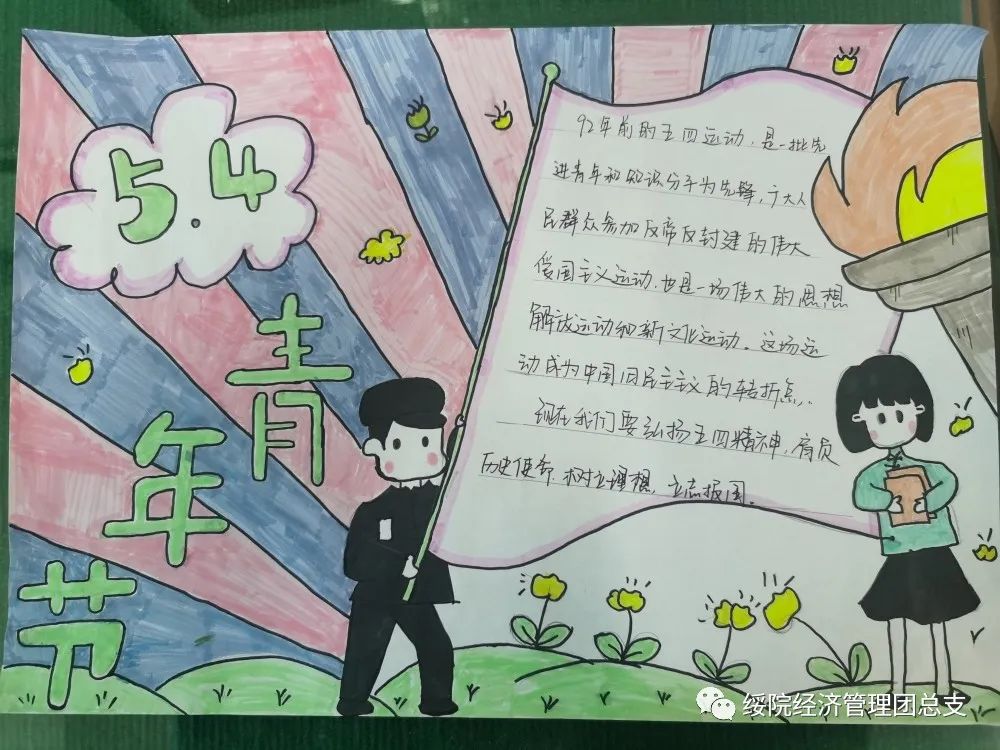 5.4
青年节
92年前的五四运动，是一批先
进青年和知识分子为先锋，广大人
民群众参加反帝反封建的伟大
爱国主义运动，也是一场伟大的思想
解放运动和新文化运动。这场运
动成为中国旧民主主义的转折点，
现在我们要弘扬五四精神，肩负
历史使命，树立理想，立志报国。
绥院经济管理团总支